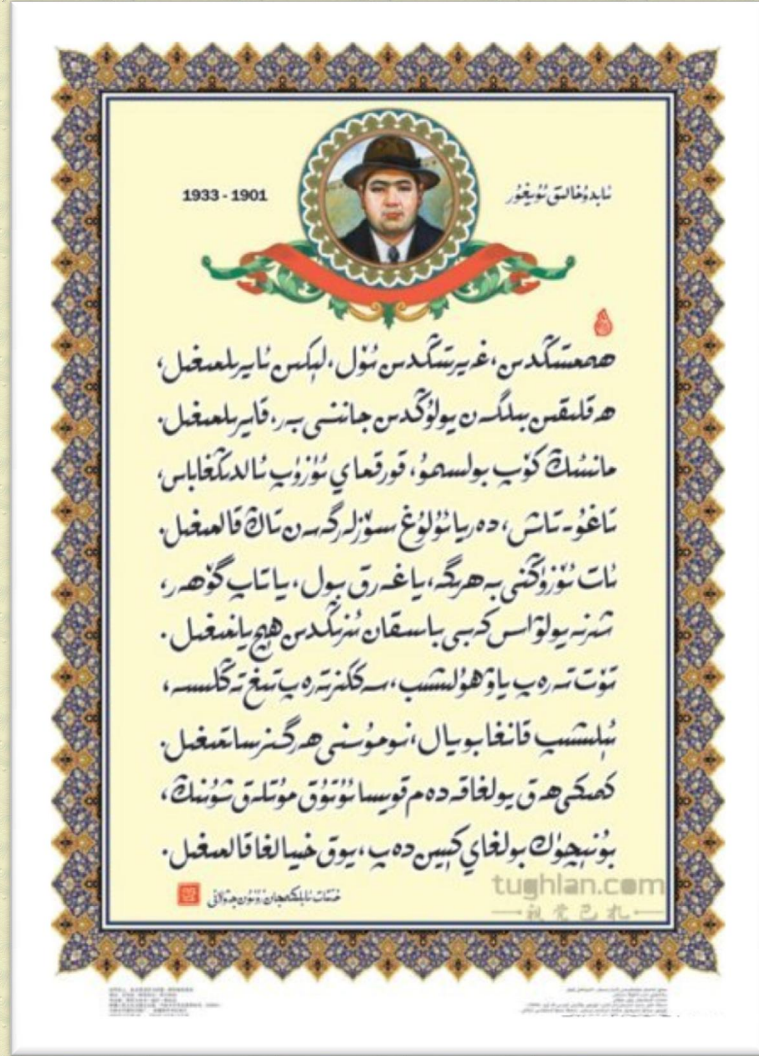 ئابدۇخالىق ئۇيغۇر
1933 - 1901
ھىممىتىڭدىن، غەيرىتىڭدىن ئۆل، لېكىن ئايرىلمىغىل،
ھەقلىقىن بىلگەن يولۇڭدىن جاننى بەر، قايرىلمىغىل.
مانىئىڭ كۆپ بولسىمۇ، قورقماي ئۈزۈپ ئالدىڭغا باس،
تاغۇ-تاش، دەريا ئۇلۇغ سۆزلەرگە سەن تاڭ قالمىغىل.
ئات ئۆزۈڭنى بەھرىگە، يا غەرق بول، يا تاپ گۆھەر،
شىرنە يولۋاس كەبى باسقان ئىزىڭدىن ھېچ يانمىغىل.
تۆت تەرەپ ياۋ ھۇلىشىپ، سەككىز تەرەپ تىغ تەڭلىسە،
ئېلىشىپ قانغا بويال، نومۇسنى ھەرگىز ساتمىغىل.
كىمكى ھەق يولغا قەدەم قويسا ئۇتۇق مۇتلەق شۇنىڭ،
بۇ نېچۈك بولغاي كېيىن دەپ، يوق خىيالغا قالمىغىل.
tughlan.com